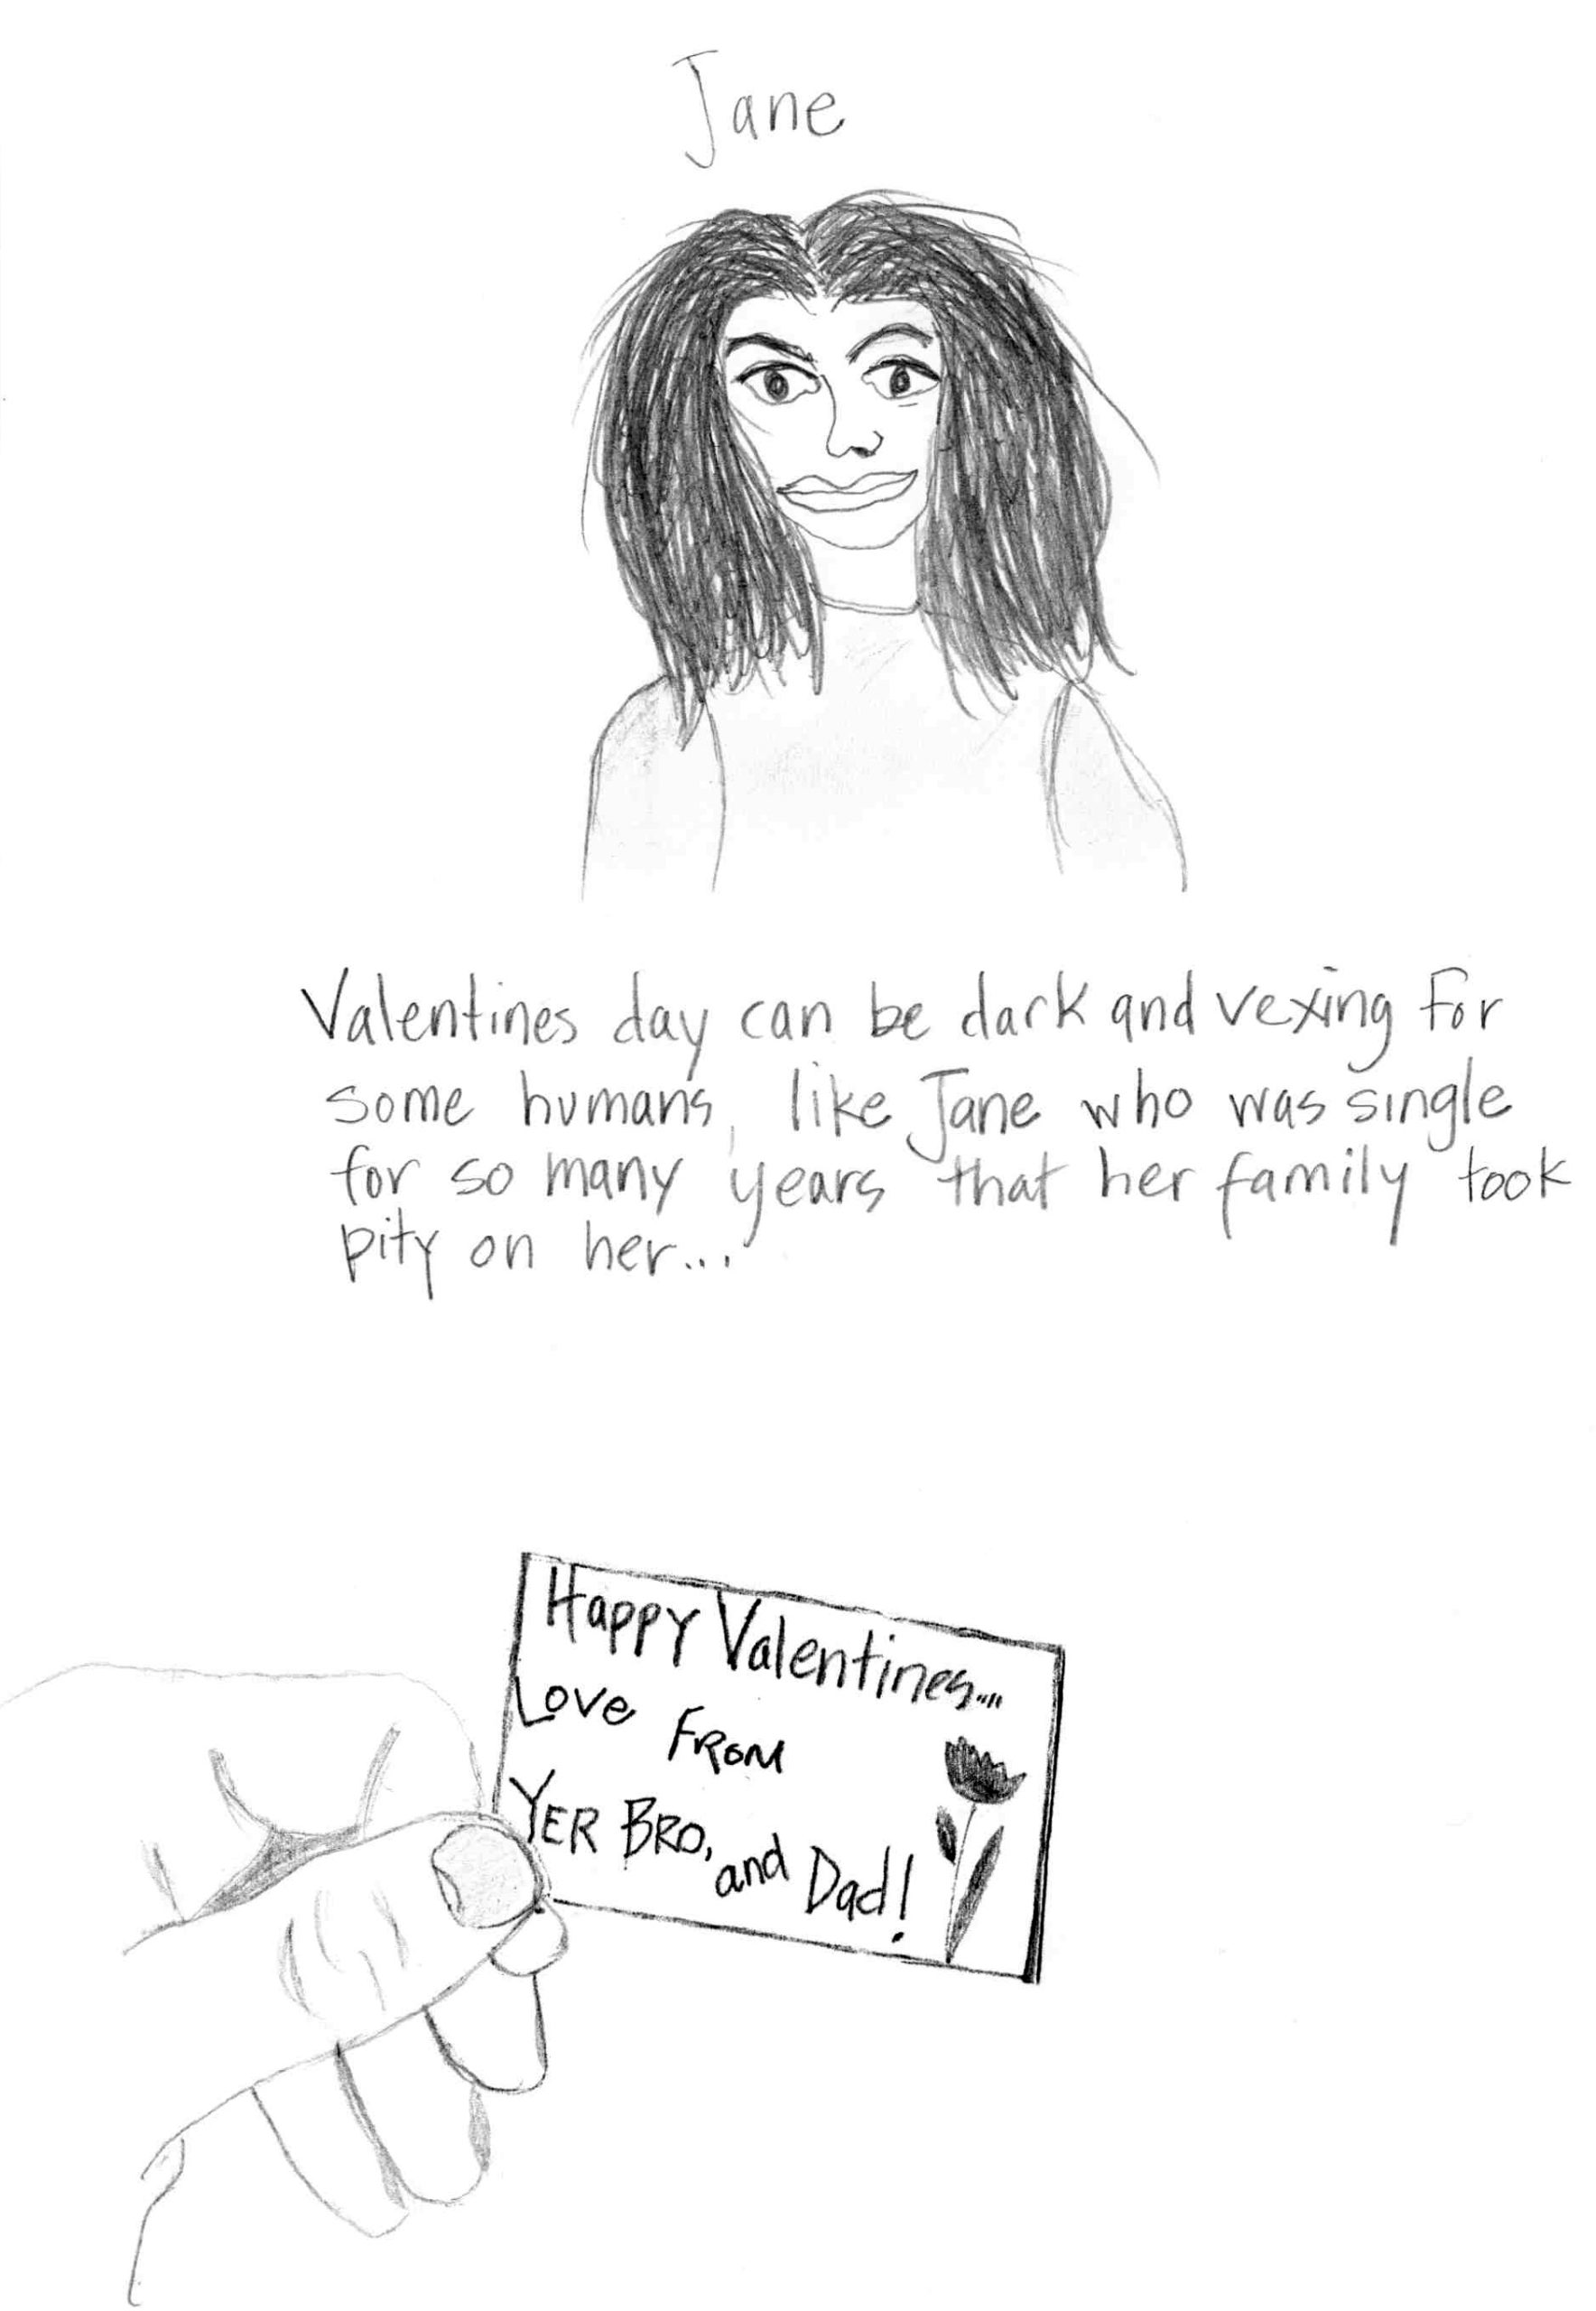 Jane
Valentines day can be dark and vexing for
some humans, like Jane who was single
for so many years that her family took
pity on her...
Happy Valentines....
Love From
YER BRO, and Dad!